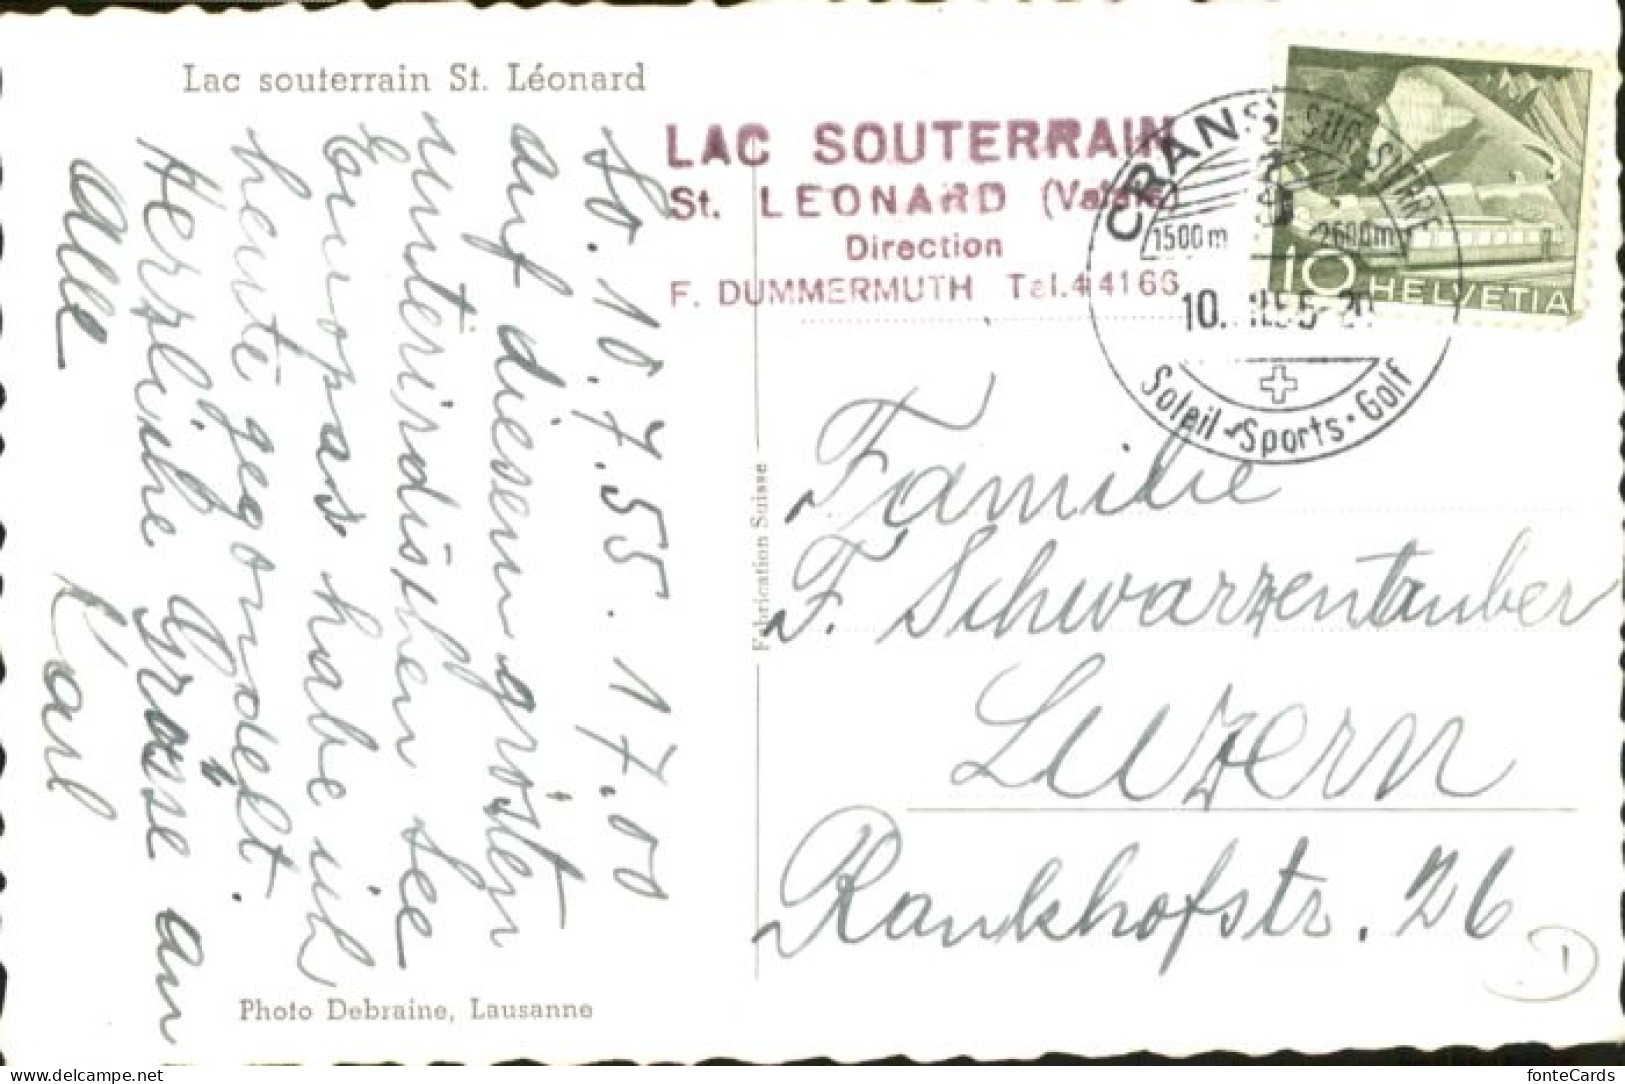 Lac souterrain St. Léonard
LAC SOUTERRAIN
St. LEONARD (Valais)
Direction
F. DUMMERMUTH Tel. 4 41 66
CRANS-SUR-SIERRE
1500 m 2600 m
10. 55-20
Soleil - Sports · Golf
10 HELVETIA
So. 10.7.55. 17.00
auf diesem grösten
unterirdischen See
Europas habe ich
heute gegondelt.
Herzliche Grüsse an
Alle
Karl
Fabrication Suisse
Familie
F. Schwarzentruber
Luzern
Rankhofstr. 26
1
Photo Debraine, Lausanne
fonteCards
delcampe.net